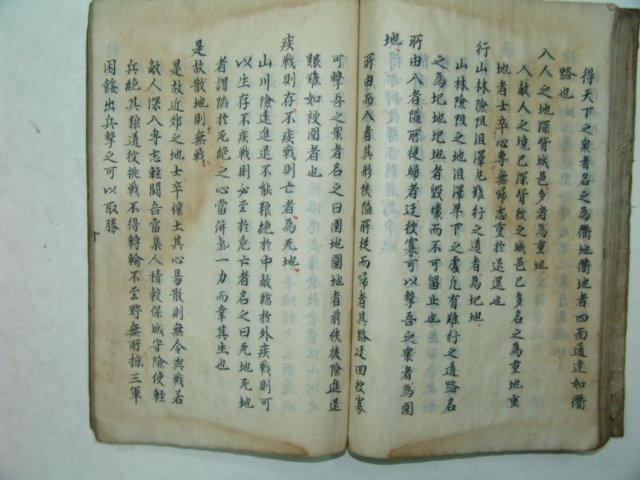 得天下之衆者名之為衢地衢地者四面通達如衢
路也
入人之地深背城邑多者為重地
入敵人之境已深背後之城邑已多名之為重地重
地者士卒心專無歸志重於退還也
行山林險阻沮澤凡難行之道者為圮地
山林險阻之地沮澤卑下之處凡有難行之道路名
之為圮地圮地者毀壞而不可留止也
所由入者隘所從歸者迂彼寡可以擊吾之衆者為圍
地
所由而入者其形狹隘所從而歸者其路迂回彼寡
可擊吾之衆者名之曰圍地圍地者前狹後險進退
艱難如受圍者也
疾戰則存不疾戰則亡者為死地
山川險遠進退不能粮絶於中敵臨於外疾戰則可
以生存不疾戰則必至於危亡者名之曰死地死地
者謂陷於死絶之心當併氣一力而幸其生也
是故散地則無戰
是故近郊之地士卒懷土其心易散則無令與戰若
敵人深入專志輕鬪吾當集人積穀保城守險使輕
兵絶其粮道彼挑戰不得轉輸不至野無所掠三軍
困餒出兵擊之可以取勝